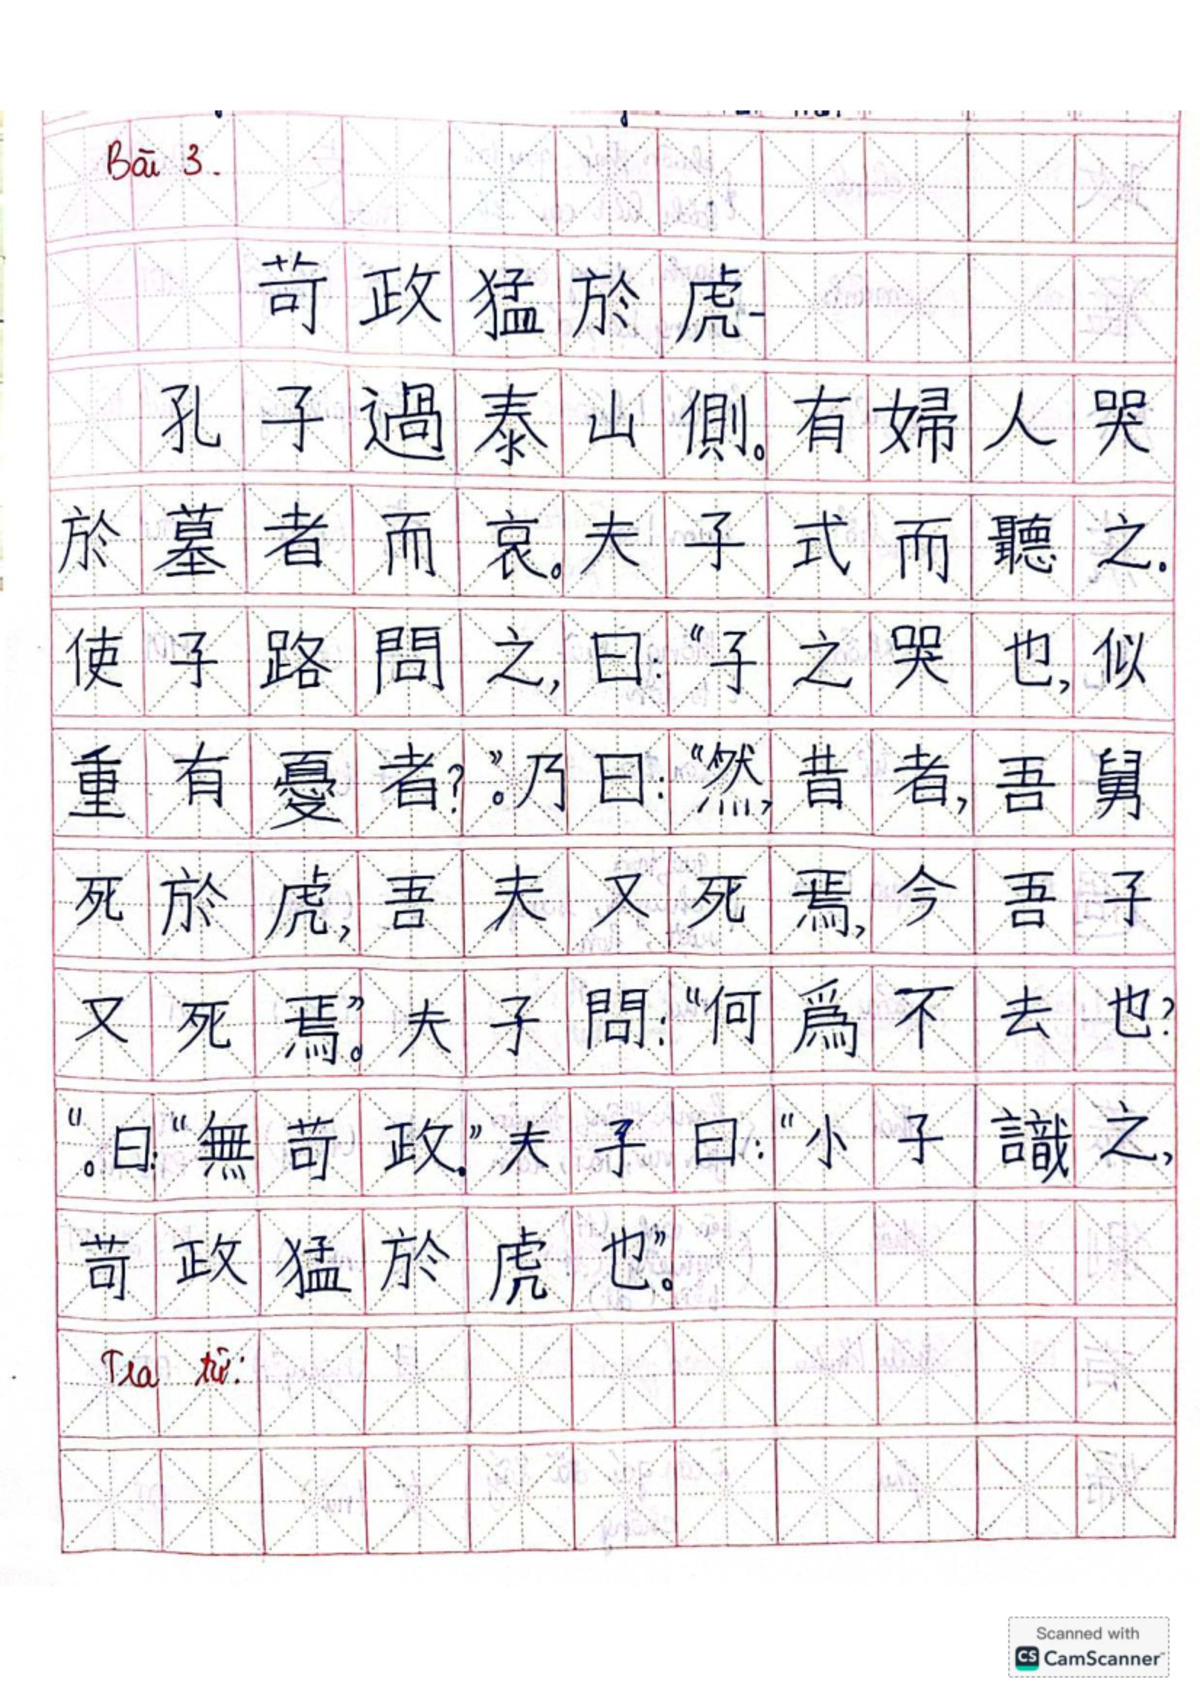 Bài 3.
苛政猛於虎-
孔子過泰山側。有婦人哭
於墓者而哀。夫子式而聽之.
使子路問之,曰:“子之哭也,似
重有憂者?”。乃曰:“然,昔者,吾舅
死於虎,吾夫又死焉,今吾子
又死焉”。夫子問:“何爲不去也?
”。曰:“無苛政.”夫子曰:“小子識之,
苛政猛於虎也”。
Tra từ:
Scanned with
CS CamScanner